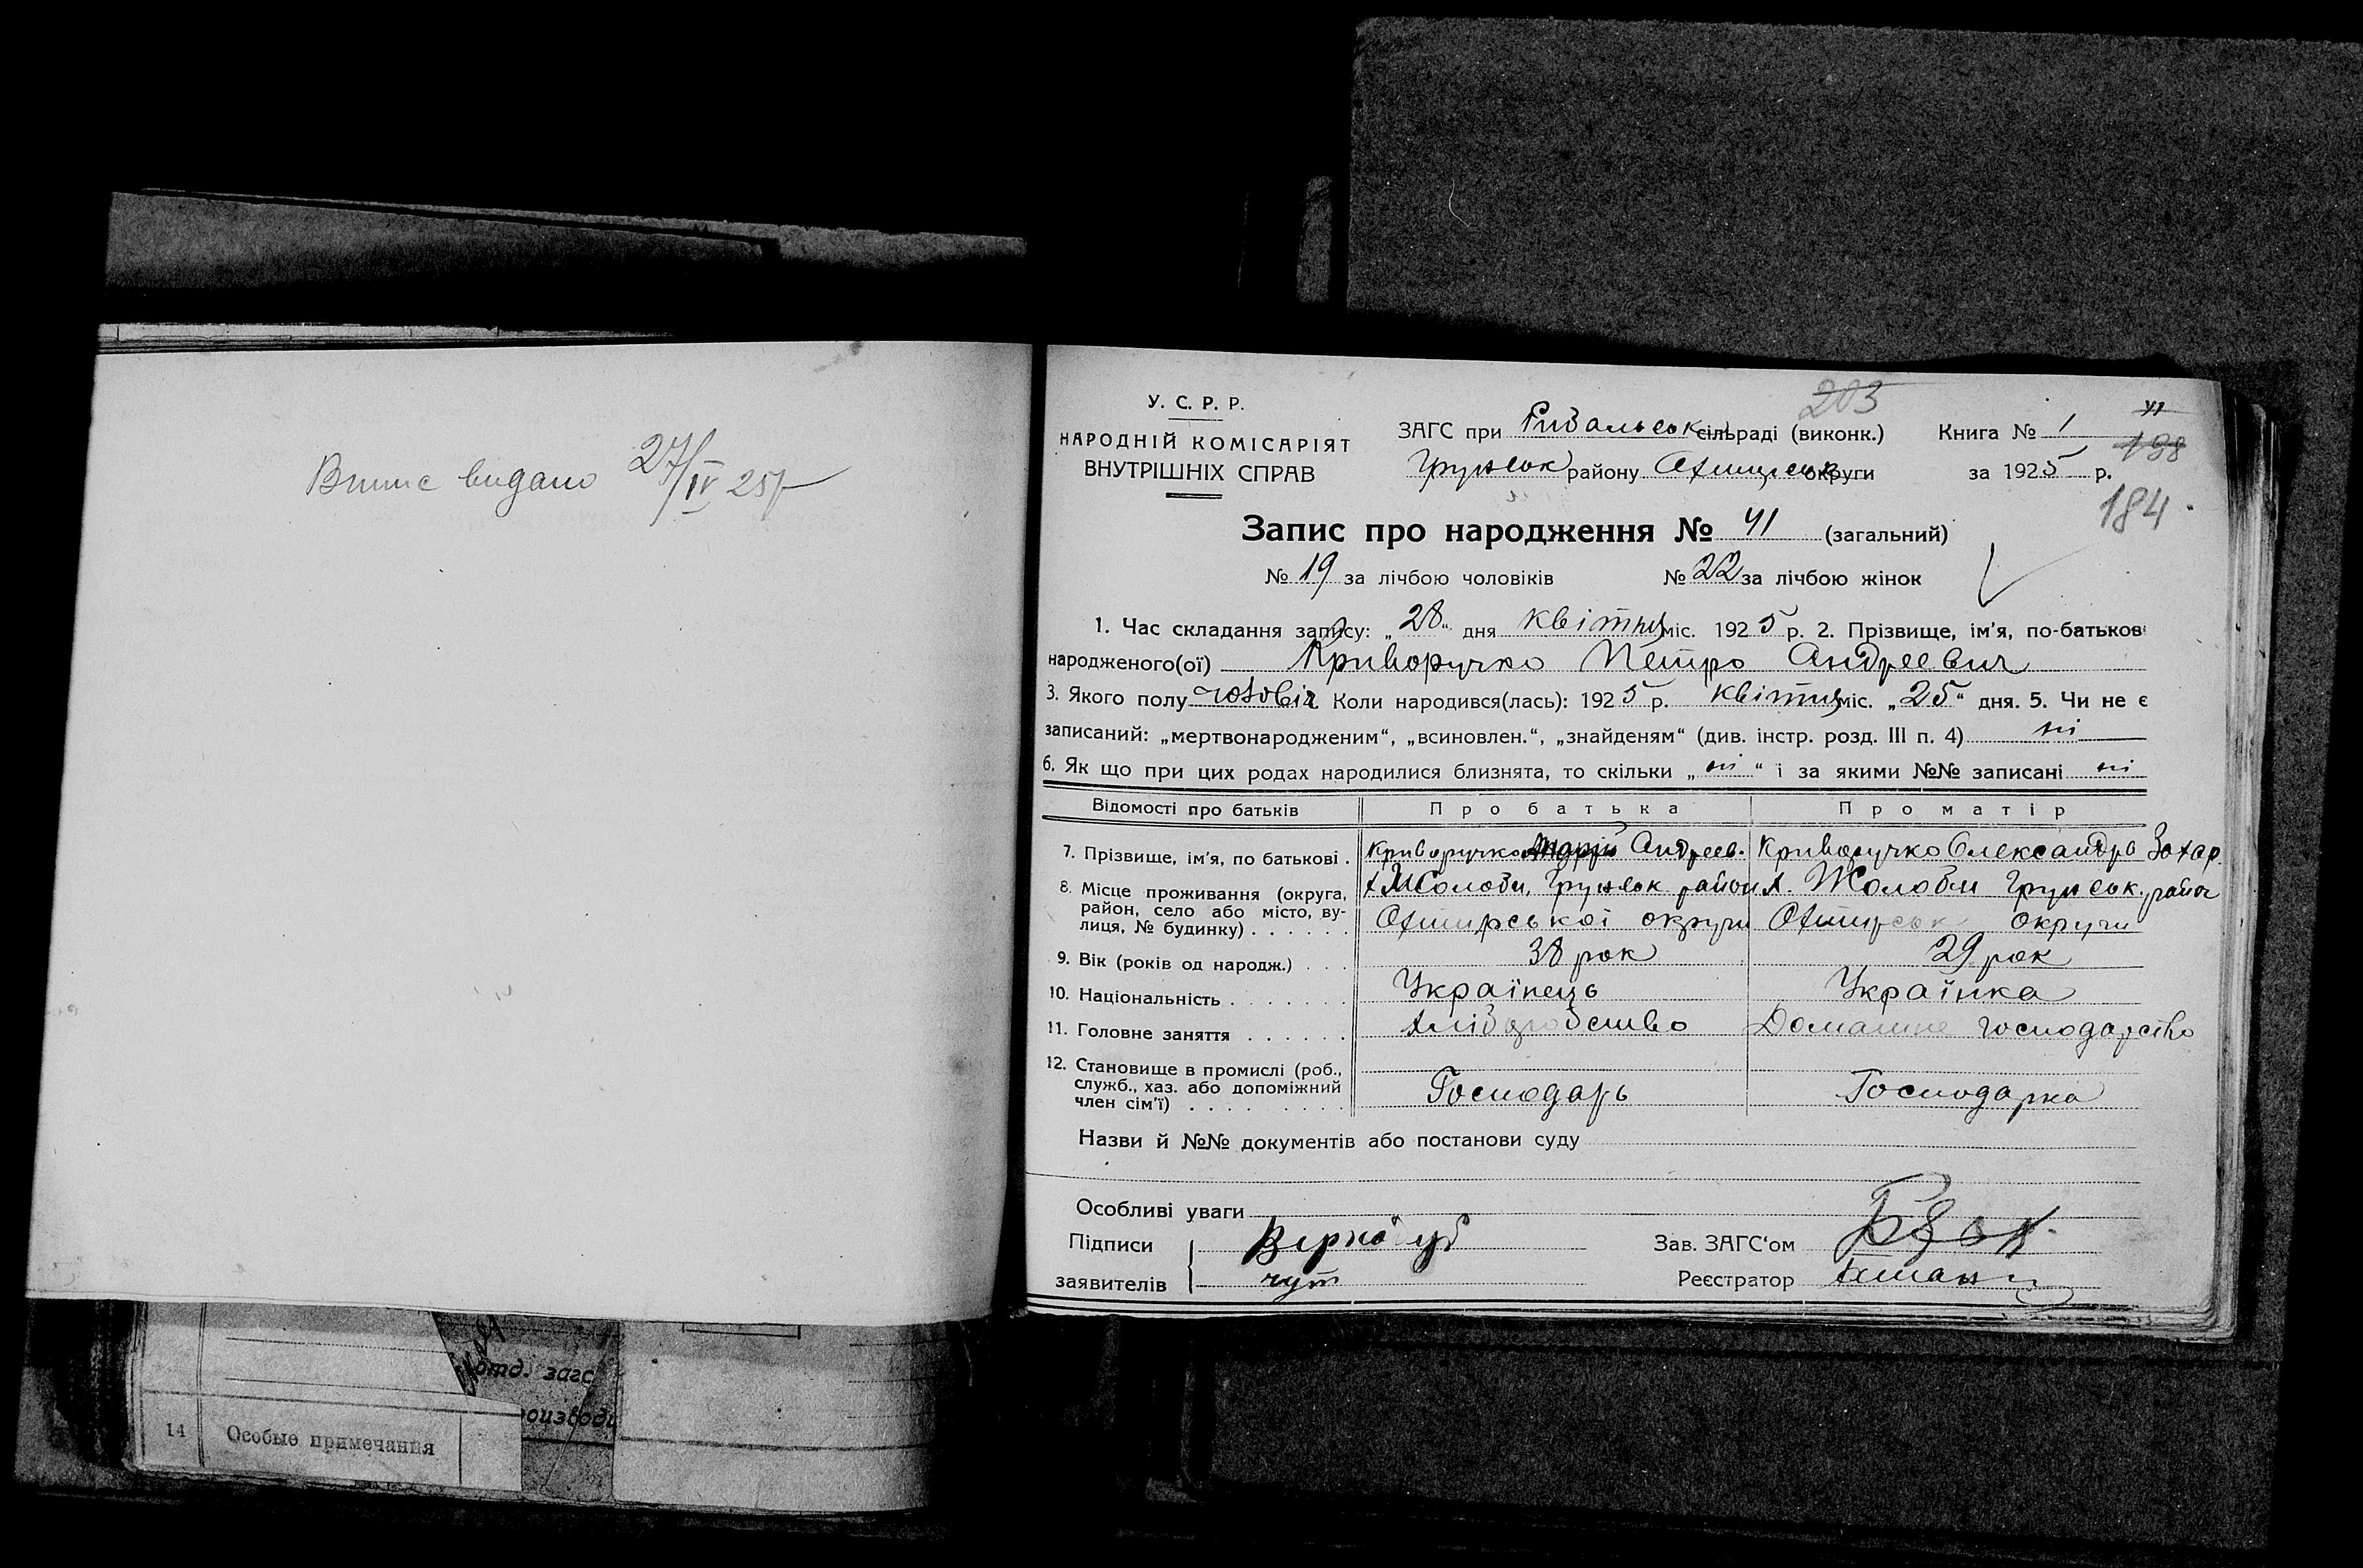 Впис видано 27/IV 25р
203
У. С. Р. Р.
НАРОДНІЙ КОМІСАРІЯТ
ВНУТРІШНІХ СПРАВ
ЗАГС при Рибальськ сільраді (виконк.)
Груньськ району Охтирськ округи
Книга № 1
за 1925 р.
41
198
184
Запис про народження № 41 (загальний)
№ 19 за лічбою чоловіків № 22 за лічбою жінок
1. Час складання запису: „28“ дня квітня міс. 1925 р. 2. Прізвище, ім'я, по-батькові
народженого(ої) Криворучко Петро Андреевич
3. Якого полу чоловіч. Коли народився(лась): 1925 р. квітня міс. „25“ дня. 5. Чи не є
записаний: „мертвонародженим“, „всиновлен.“, „знайденям“ (див. інстр. розд. III п. 4) ні
6. Як що при цих родах народилися близнята, то скільки „ні“ і за якими №№ записані ні
Відомості про батьків Про батька Про матір
7. Прізвище, ім'я, по батькові . Криворучко Андрій Андреев. Криворучко Олександра Захар.
8. Місце проживання (округа, район, село або місто, вулиця, № будинку) . . . . . . х. Жолоби, Груньськ район х. Жолоби Груньськ. район
Охтирської округи Охтирськ округи
9. Вік (років од народж.) . . . 38 рок 29 рок
10. Національність . . . . . . . Українець Українка
11. Головне заняття . . . . . . Хліборобство Домашне господарство
12. Становище в промислі (роб., служб., хаз. або допоміжний член сім'ї) . . . . . . . . Господарь Господарка
Назви й №№ документів або постанови суду
Особливі уваги
Підписи
заявителів
Зав. ЗАГС'ом
Реєстратор
отд. загс
14 Особые примечания